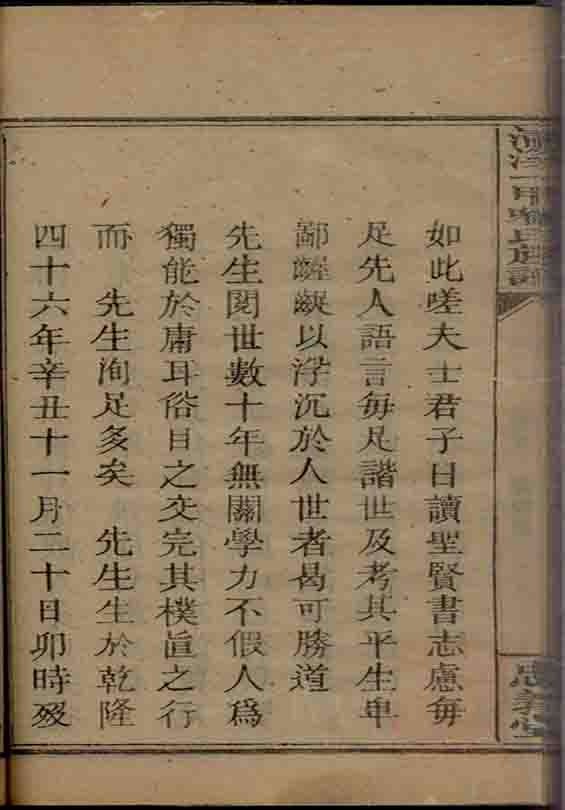 氏族譜
如此嗟夫士君子日讀聖賢書志慮每
足先人語言每足諧世及考其平生卑
鄙齷齪以浮沉於人世者曷可勝道
先生閱世數十年無關學力不假人爲
獨能於庸耳俗目之交完其樸眞之行
而　先生洵足多矣　先生生於乾隆
四十六年辛丑十一月二十日卯時歿